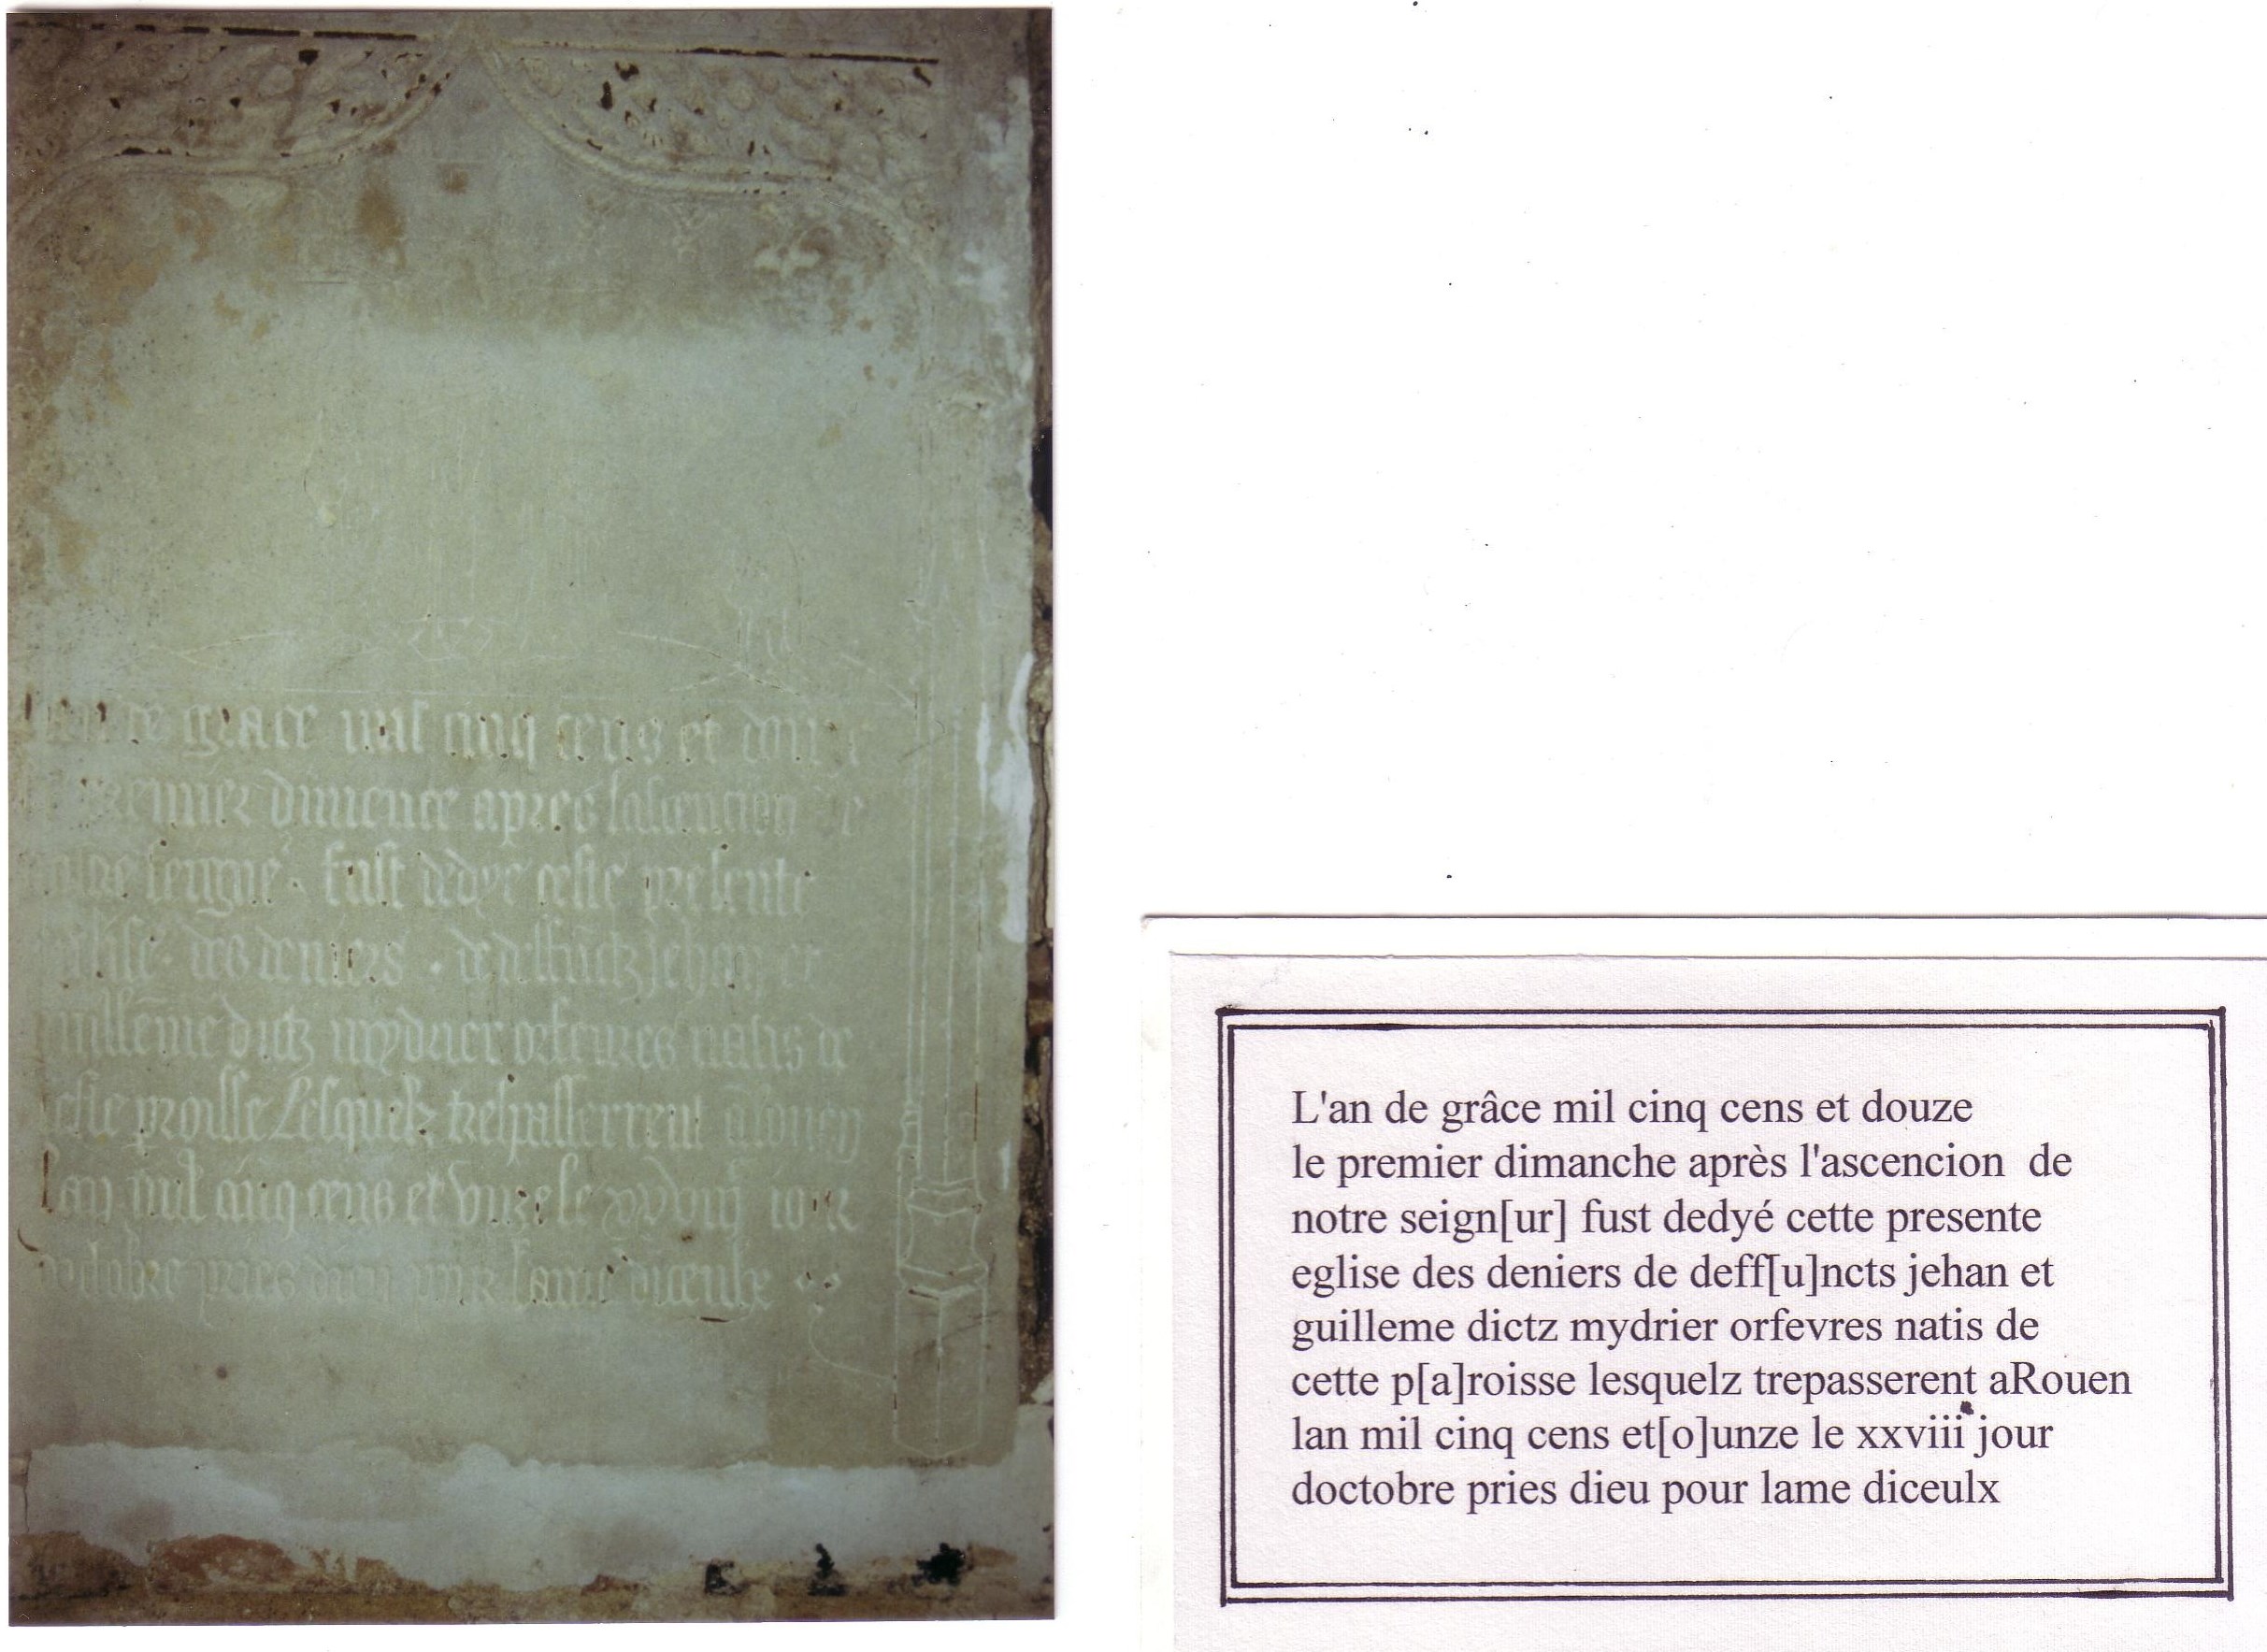 lan de grace mil cinq cens et douze
premier dimence apres lascencion de
nostre seigne fust dedye ceste presente
eglise des deniers de deffuctz Jehan et
guilleme dictz mydrier orfevres natis de
ceste proisse Lesquelz trespasserrent a Rouen
lan mil cinq cens et unze le xxviij iour
doctobre pries dieu pour lame diceulx
L'an de grâce mil cinq cens et douze
le premier dimanche après l'ascencion de
notre seign[ur] fust dedyé cette presente
eglise des deniers de deff[u]ncts jehan et
guilleme dictz mydrier orfevres natis de
cette p[a]roisse lesquelz trepasserent aRouen
lan mil cinq cens et[o]unze le xxviii jour
doctobre pries dieu pour lame diceulx